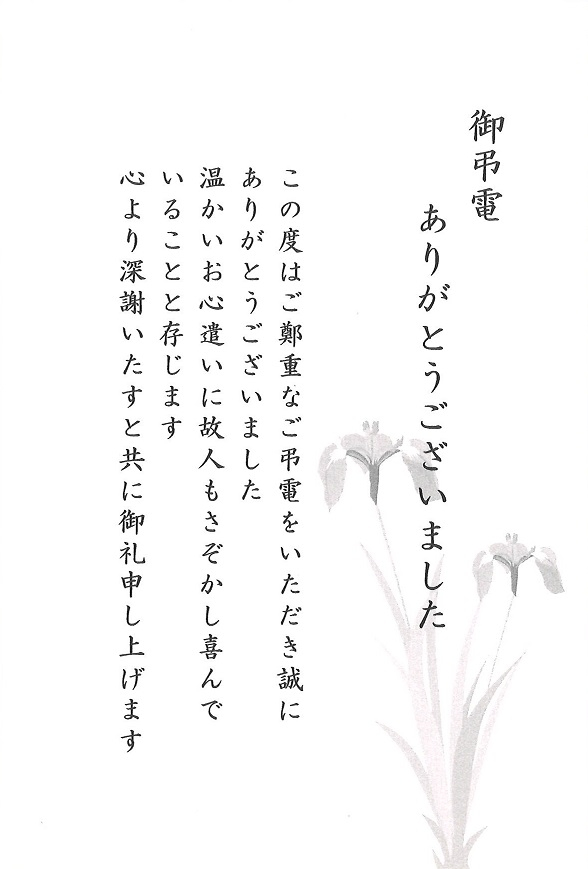 御弔電
ありがとうございました
この度はご鄭重なご弔電をいただき誠に
ありがとうございました
温かいお心遣いに故人もさぞかし喜んで
いることと存じます
心より深謝いたすと共に御礼申し上げます